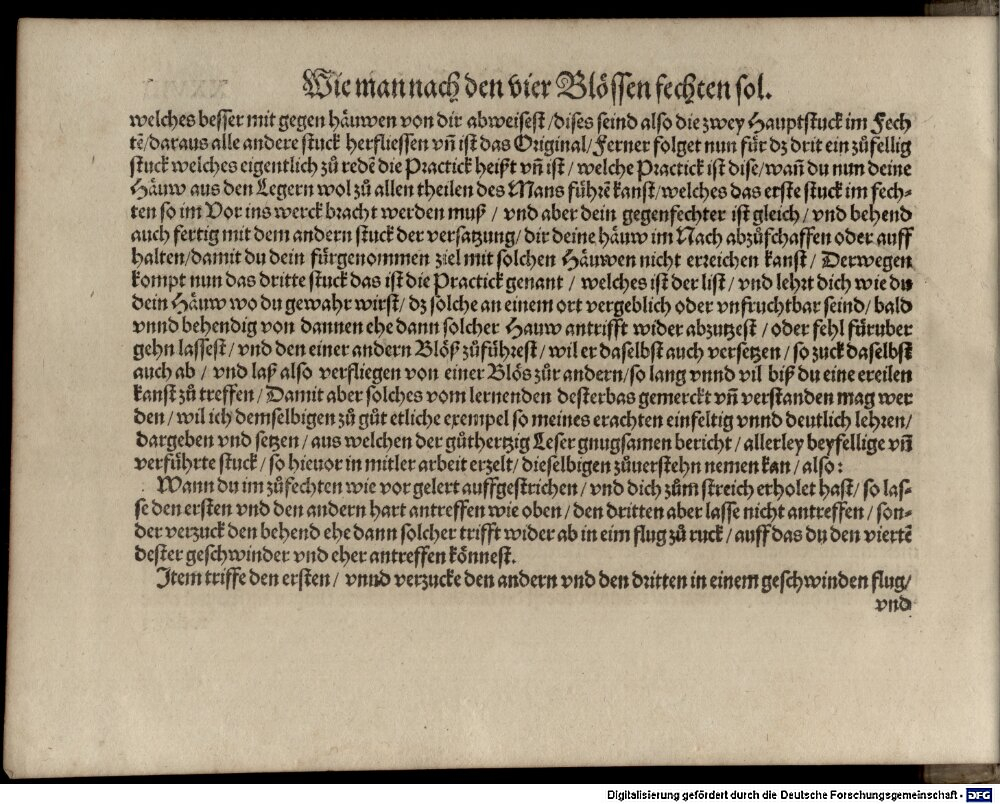 Wie man nach den vier Blössen fechten sol.
welches besser mit gegen häuwen von dir abweisest / dises seind also die zwey Hauptstuck im Fech
tẽ / daraus alle andere stuck herfliessen vñ ist das Original / Ferner folget nun für dz drit ein zůfellig
stuck welches eigentlich zů redẽ die Practick heißt vñ ist / welche Practick ist dise / wañ du nun deine
Häuw aus den Legern wol zů allen theilen des Mans führẽ kanst / welches das erste stuck im fech-
ten so im Vor ins werck bracht werden muß / vnd aber dein gegenfechter ist gleich / vnd behend
auch fertig mit dem andern stuck der versatzung / dir deine häuw im Nach abzůschaffen oder auff
halten / damit du dein fürgenommen ziel mit solchen Häuwen nicht erreichen kanst / Derwegen
kompt nun das dritte stuck das ist die Practick genant / welches ist der list / vnd lehrt dich wie du
dein Häuw wo du gewahr wirst / dz solche an einem ort vergeblich oder vnfruchtbar seind / bald
vnnd behendig von dannen ehe dann solcher Hauw antrifft wider abzutzest / oder fehl füruber
gehn lassest / vnd den einer andern Blöß zůführest / wil er daselbst auch versetzen / so zuck daselbst
auch ab / vnd laß also verfliegen von einer Blös zůr andern / so lang vnnd vil biß du eine ereilen
kanst zů treffen / Damit aber solches vom lernenden desterbas gemerckt vñ verstanden mag wer
den / wil ich demselbigen zů gůt etliche exempel so meines erachten einfeltig vnnd deutlich lehren /
dargeben vnd setzen / aus welchen der gůthertzig Leser gnugsamen bericht / allerley beyfellige vñ
verführte stuck / so hieuor in mitler arbeit erzelt / dieselbigen zůuerstehn nemen kan / also:
Wann du im zůfechten wie vor gelert auffgestrichen / vnd dich zům streich erholet hast / so las-
se den ersten vnd den andern hart antreffen wie oben / den dritten aber lasse nicht antreffen / son-
der verzuck den behend ehe dann solcher trifft wider ab in eim flug zů ruck / auff das du den viertẽ
dester geschwinder vnd eher antreffen könnest.
Item triffe den ersten / vnnd verzucke den andern vnd den dritten in einem geschwinden flug /
vnd
Digitalisierung gefördert durch die Deutsche Forschungsgemeinschaft - DFG